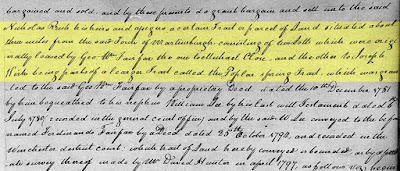 bargained and sold, and by these presents do grant bargain and sell unto the said
Nicholas Rush his heirs and assigns a certain Tract or parcel of Land situated about
three miles from the said Town of Martinsburgh consisting of two lotts which were orig-
inally leased by Geo: Wm Fairfax the one to Michael Close, and the other to Joseph
being parts of a Larger Tract called the Poplar spring Tract, which was gran-
ted to the said Geo: Wm Fairfax by a proprietary Deed dated the 10th Decemr 1751
by him bequeathed to his nephew William Lee by his last will & Testament dated
July 1780, recorded in the general court office, and by the said W. Lee conveyed to the befor
named Ferdinando Fairfax by a Deed dated 25th October 1790, and recorded in the
Winchester district court; which tract of Land hereby conveyed is bounded as by a
ate survey thereof made by Mr David Hunter in april 1797, as follows viz: begin